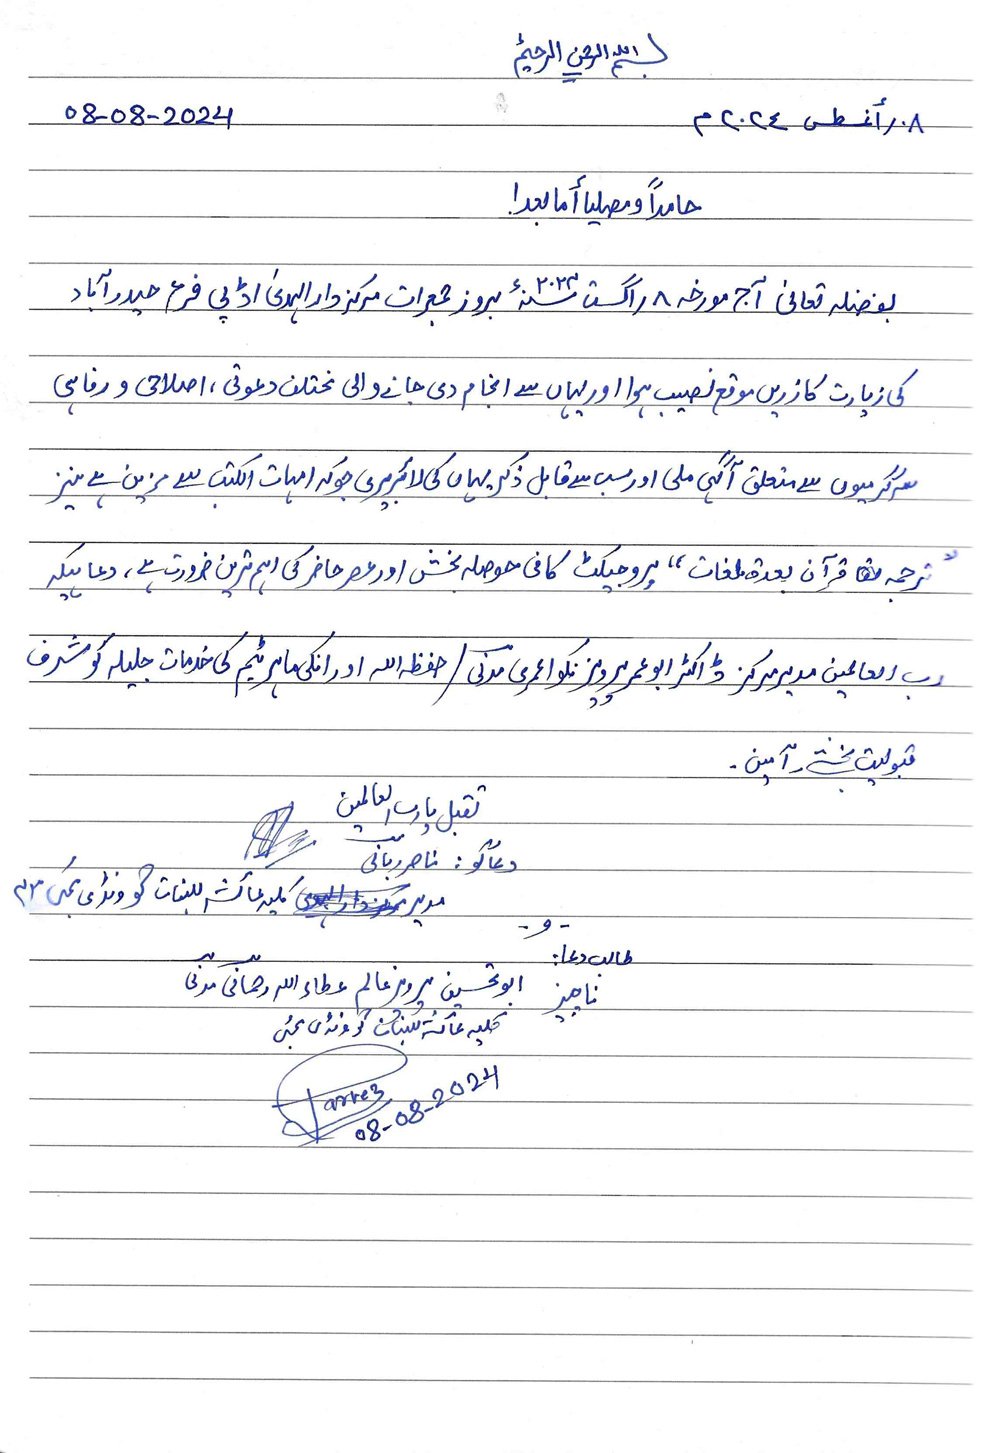 بسم الله الرحمن الرحيم
٠٨/أغسطس ٢٠٢٤م 08-08-2024
حامداً ومصلیا أما بعد!
بفضلہ تعالیٰ آج مورخہ ۸/اگست ۲۰۲۴ سنہء بروز جمعرات مرکز دارالہدیٰ اڈپی فرع حیدرآباد
کی زیارت کا زریں موقع نصیب ہوا اور یہاں سے انجام دی جانے والی مختلف دعوتی، اصلاحی و رفاہی
سرگرمیوں سے متعلق آگہی ملی اور سب سے قابل ذکر یہاں کی لائبریری جو کہ امہات الکتب سے مزین ہے نیز
"ترجمہ قرآن بعدۃ لغات" پروجیکٹ کافی حوصلہ بخش اور عصر حاضر کی اہم ترین ضرورت ہے، دعا ہیکہ
رب العالمین مدیر مرکز ڈاکٹر ابو عمر پرویز نکوا عمری مدنی/حفظہ اللہ اور انکی ماہر ٹیم کی خدمات جلیلہ کو شرف
قبولیت بخشے۔ آمین۔
تقبل یا رب العالمین
دعاگو: ناصر ربانی
مدیر کلیہ عائشہ للبنات گوونڈی ممبئی ۴۳
-و-
طالب دعا:
ناچیز ابو تحسین پرویز عالم عطاء اللہ رحمانی مدنی
کلیہ عائشہ للبنات گوونڈی ممبئی
Parvez
08-08-2024